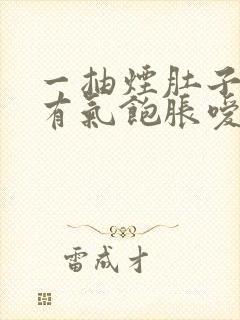 一抽煙肚子
有氣飽脹噯
雷成才